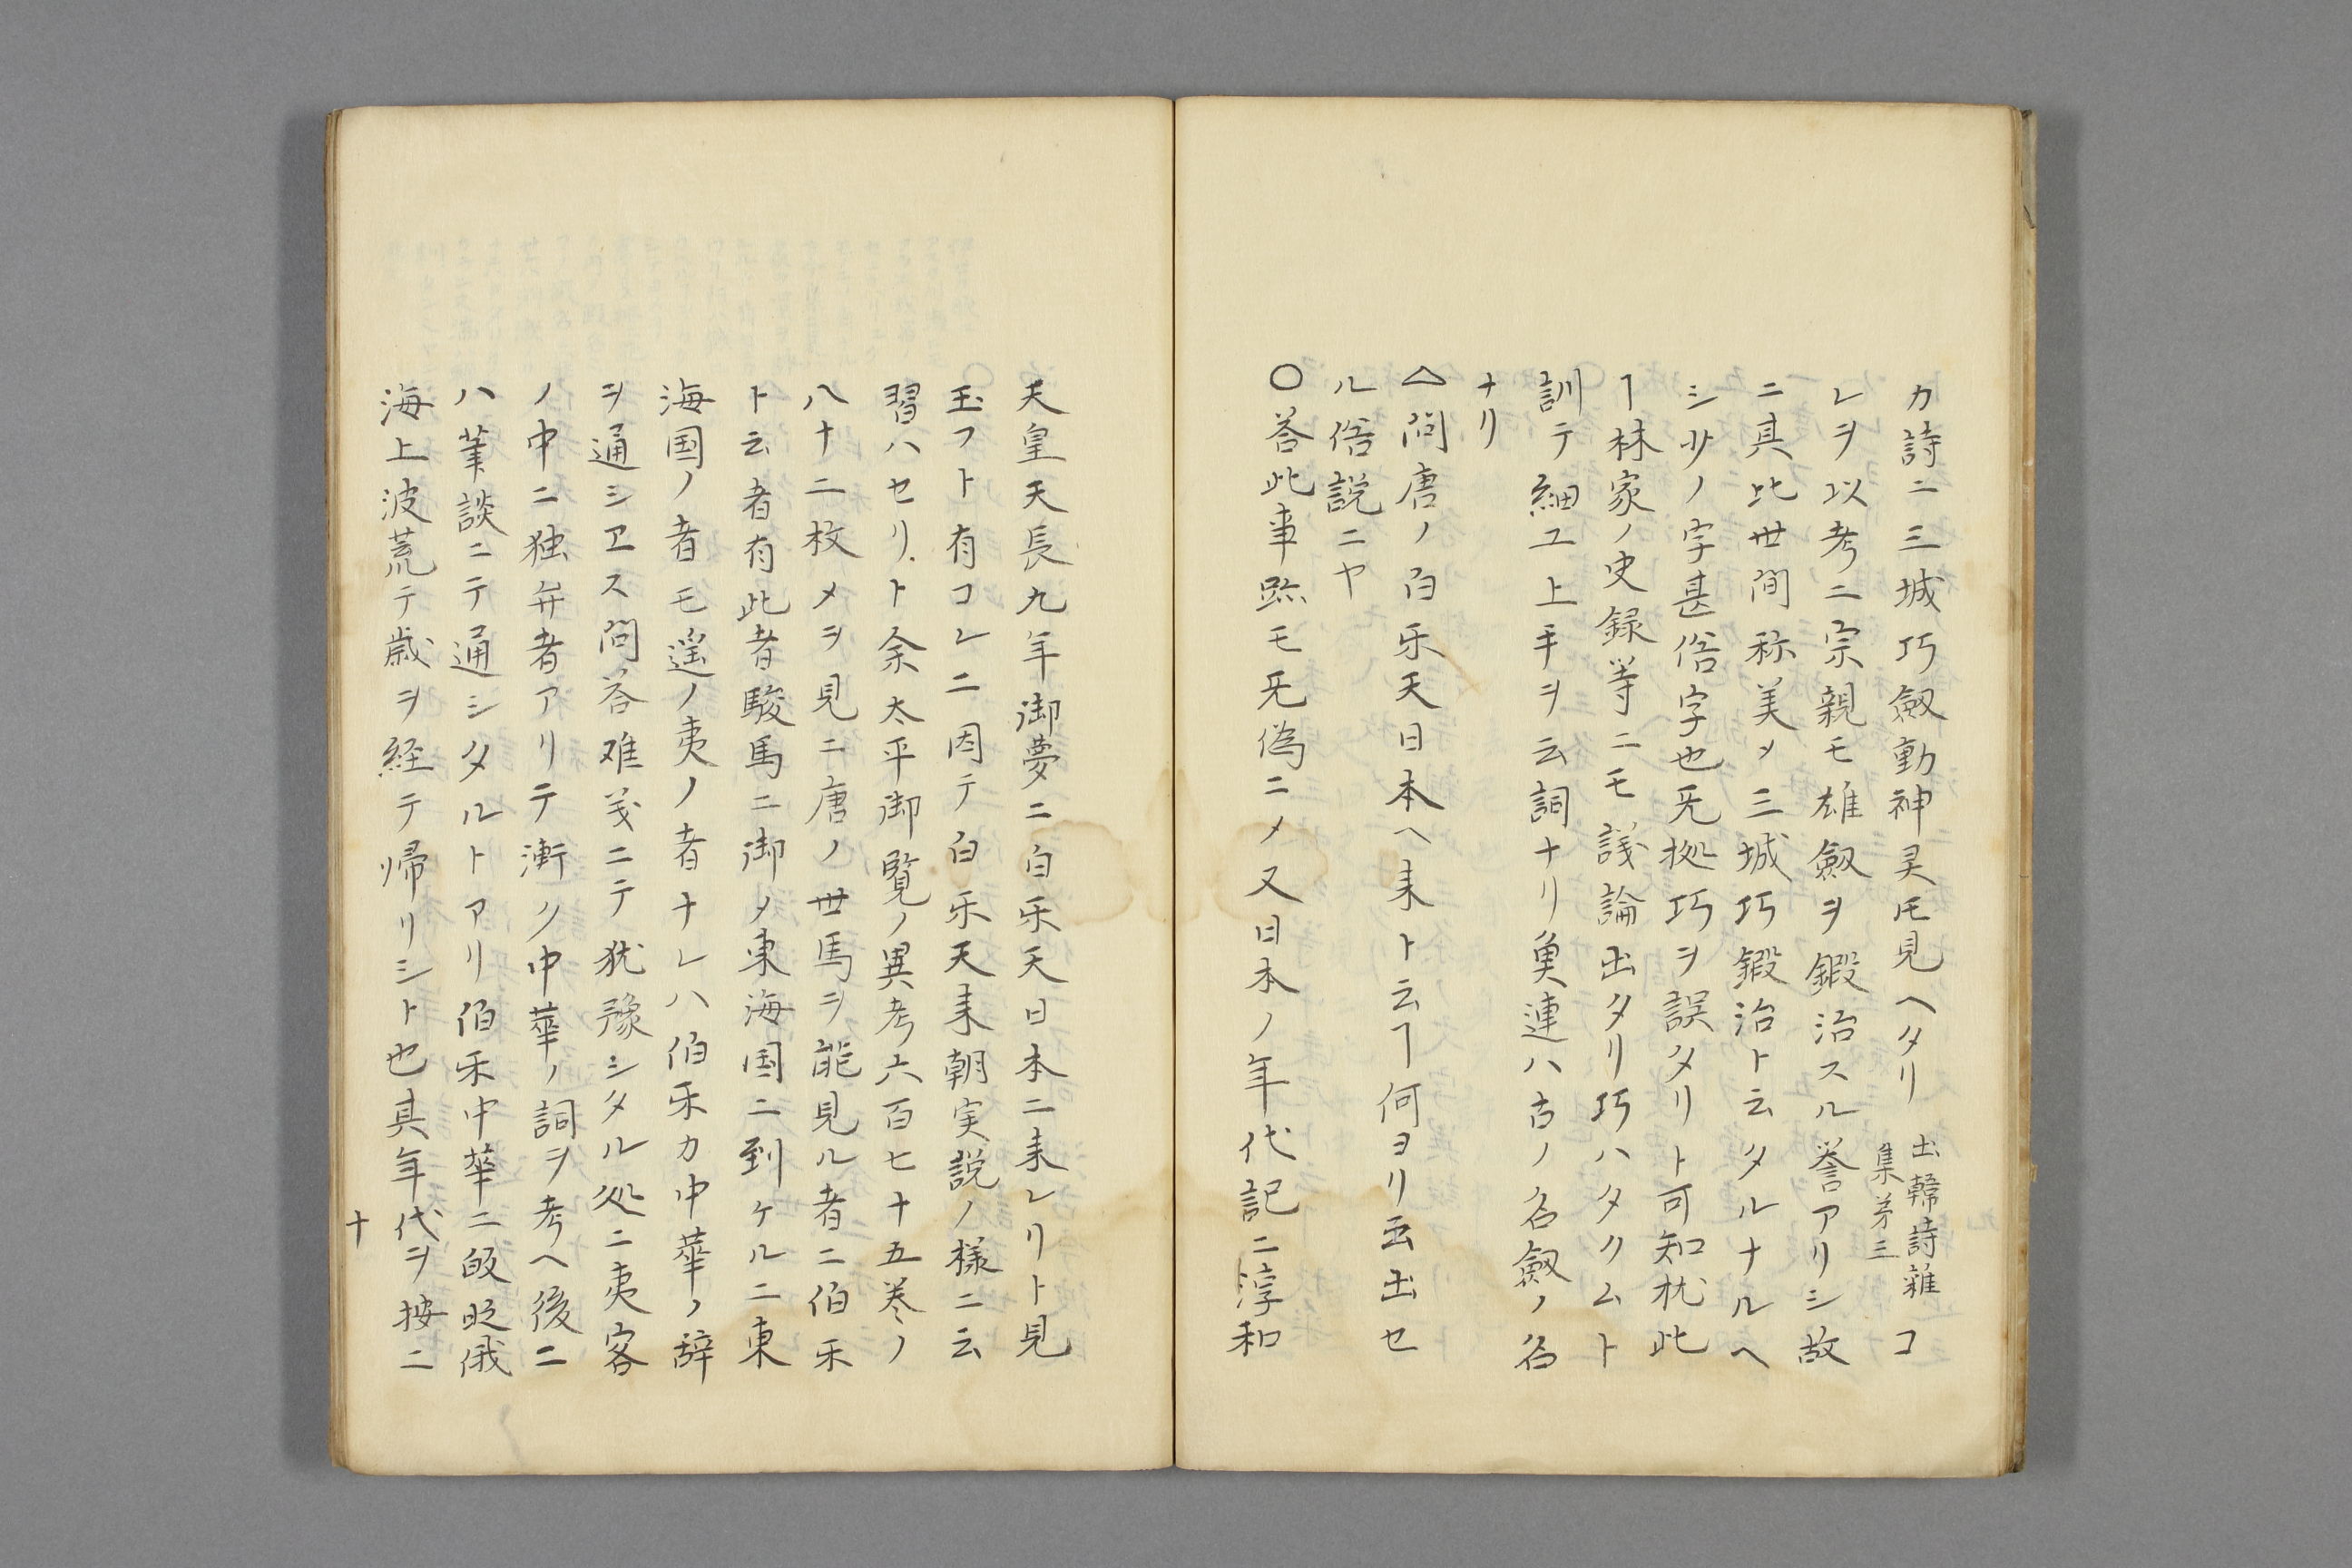 カ詩ニ三城巧劔動神灵㲄見ヘタリ 出韓詩雑集㐧三 コ
レヲ以考ニ宗親モ雄劔ヲ鍛治スル誉アリシ故
ニ其比世間称美〆三城巧鍛治ト云タルナルヘ
シ少ノ字甚俗字也旡拠巧ヲ誤タリト可知枕此
ヿ林家ノ史録等ニモ議論出タリ巧ハタクムト
訓テ細工上手ヲ云詞ナリ奠連ハ古ノ名劔ノ名
ナリ
△問唐ノ白乐天日本ヘ耒ト云ヿ何ヨリ云出セ
ル俗説ニヤ
○答此事跡モ旡偽ニ〆又日本ノ年代記ニ淳和
天皇天長九年御夢ニ白乐天日本ニ耒レリト見
玉フト有コレニ因テ白乐天耒朝実説ノ様ニ云
習ハセリト余太平御覧ノ異考六百七十五巻ノ
八十二枚メヲ見ニ唐ノ世馬ヲ能見ル者ニ伯乐
ト云者有此者駿馬ニ御〆東海国ニ到ケルニ東
海国ノ者モ遥ノ夷ノ者ナレハ伯乐カ中華ノ辞
ヲ通シヱス問答难義ニテ犹豫シタル処ニ夷客
ノ中ニ独弁者アリテ漸ク中華ノ詞ヲ考ヘ後ニ
ハ筆談ニテ通シタルトアリ伯乐中華ニ皈ル俄
海上波荒テ歳ヲ経テ帰リシト也其年代ヲ按ニ
十